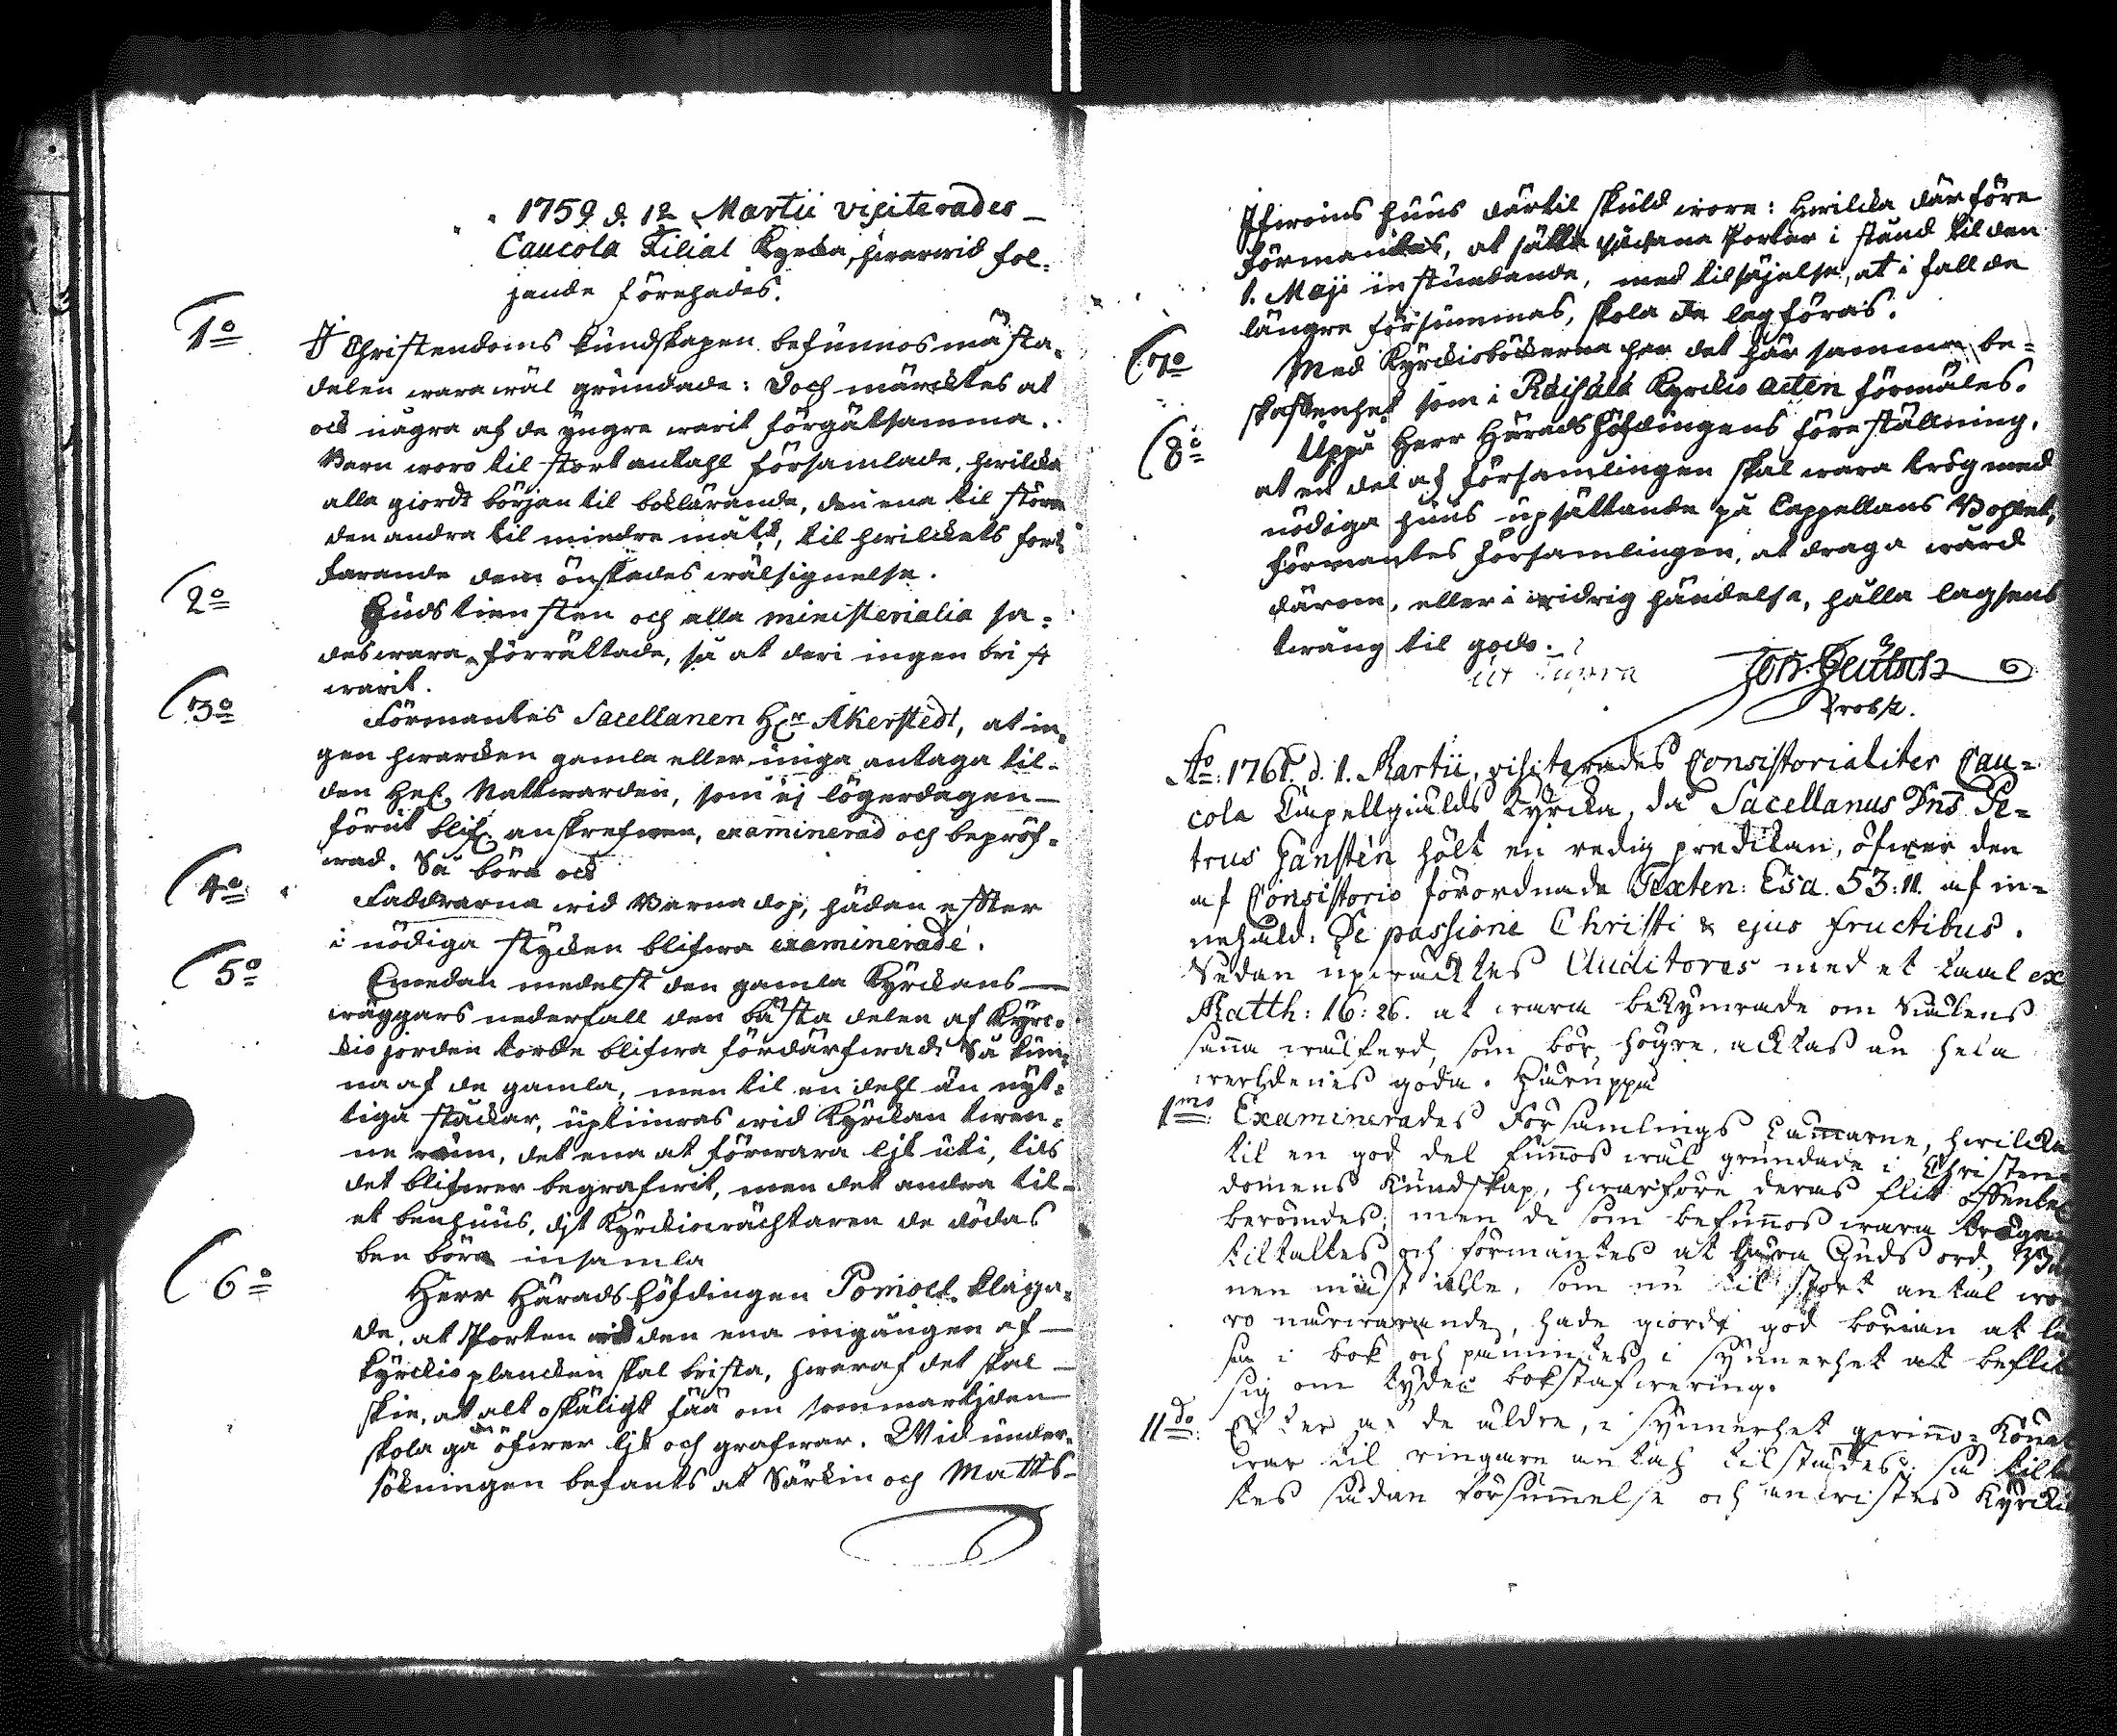 1759 d. 12 Martii visiterades
Caucola Filial Kyrcka, hwarwid föl-
jande förehades.
1o
I Christendoms kundskapen befunnos mästa-
delen wara wäl grundade: doch märcktes at
ock några af de yngre warit förgätsamma.
Barn woro til stort antahl församlade, hwilcka
alla giordt början til boklärande, den ena til större
den andra til mindre mått, til hwilckets fort-
farande dem önskades wälsignelse.
2o
Gudstiensten och alla ministerialia sa-
des wara förrättade, så at deri ingen brist
warit.
3o
Förmantes Sacellanen Hr Åkerstedt, at in-
gen hwarcken gamla eller unga antaga til
den Hel. Nattwarden, som ej lögerdagen
förut blif. anskrefwen, examinerad och bepröf-
wad. Så böra ock
4o
Faddrarna wid Barnadop, hädan effter
i nödiga stycken blifwa examinerade.
5o
Emedan medelst den gamla Kyrckans
wäggars nederfall den bästa delen af Kyrc-
kiojorden torde blifwa fördärfwad; Så kun-
na af de gamla, men til en dehl än nyt-
tiga stockar, uptimras wid Kyrckan twen-
ne rum, det ena at förwara lijk uti, tils
det blifwer begrafwit, men det andra til
et benhuus, dijt Kyrckiowächtaren de dödas
ben böra insamla
6o
Herr Häradshöfdingen Pomoel. klaga-
de, at Porten wid den ena ingången af
Kyrckioplancken skal brista, hwaraf det skal
skie, at alt oskäligt fää om sommartijden
skola gå öfwer lijk och grafwar. Wid under-
sökningen befants at Särkin och Matts-
Ifwoins huus därtil skuld wore: hwilcka därföre
förmantes, at sätta sådana Portar i stånd til den
1. Maji instundande, med tilsäjelse, at i fall de
längre försummas, skola de lagföras.
7o
Med Kyrckioböckerna har det här samma be-
skaffenhet som i Räisälä Kyrckio acten förmäles.
8o
Uppå Herr Häradshöfdingens föreställning,
at en del af församlingen skal wara trög med
nödiga huus upsättande på Cappellans Bohlet,
förmantes församlingen, at draga wård
därom, eller i widrig händelse, hålla lagsens
twång til godo.
ut supra
Prob:tz.
Ao: 1761. d. 1. Martii, visiterades Consistorialiter Cau-
cola Capellgiälds Kyrcka, då Sacellanus Dns Pe-
trus Hänstén hölt en redig predikan, öfwer den
af Consistorio förordnade Texten: Esa. 53:11. af in-
nehåld: De passione Christi & ejus fructibus.
Sedan upwäcktes Auditores med et taal ex
Matth: 16: 26. at wara bekymrade om Siälens
sanna wälferd, som bör högre acktas än hela
werldenes goda. Häruppå
1mo:
Examinerades Församlings Lammarne, hwilcka
til en god del funnos wäl grundade i Christen-
domens Kundskap, hwarföre deras flit offentel
berömdes; men de som befunnos wara tröga
tiltaltes och förmantes at lära Guds ord, Ba
nen mäst alle, som nu til stort antal wo
ro närwarande, hade giordt god börian at lä
sa i bok och påmintes i synnerhet at beflita
sig om tydelig bokstafwering.
IIdo:
Efter at de äldre, i synnerhet qwinno-Könet
war til ringare antal tilstädes; så tilta
tes sådan försummelse och anwistes Kyrcki